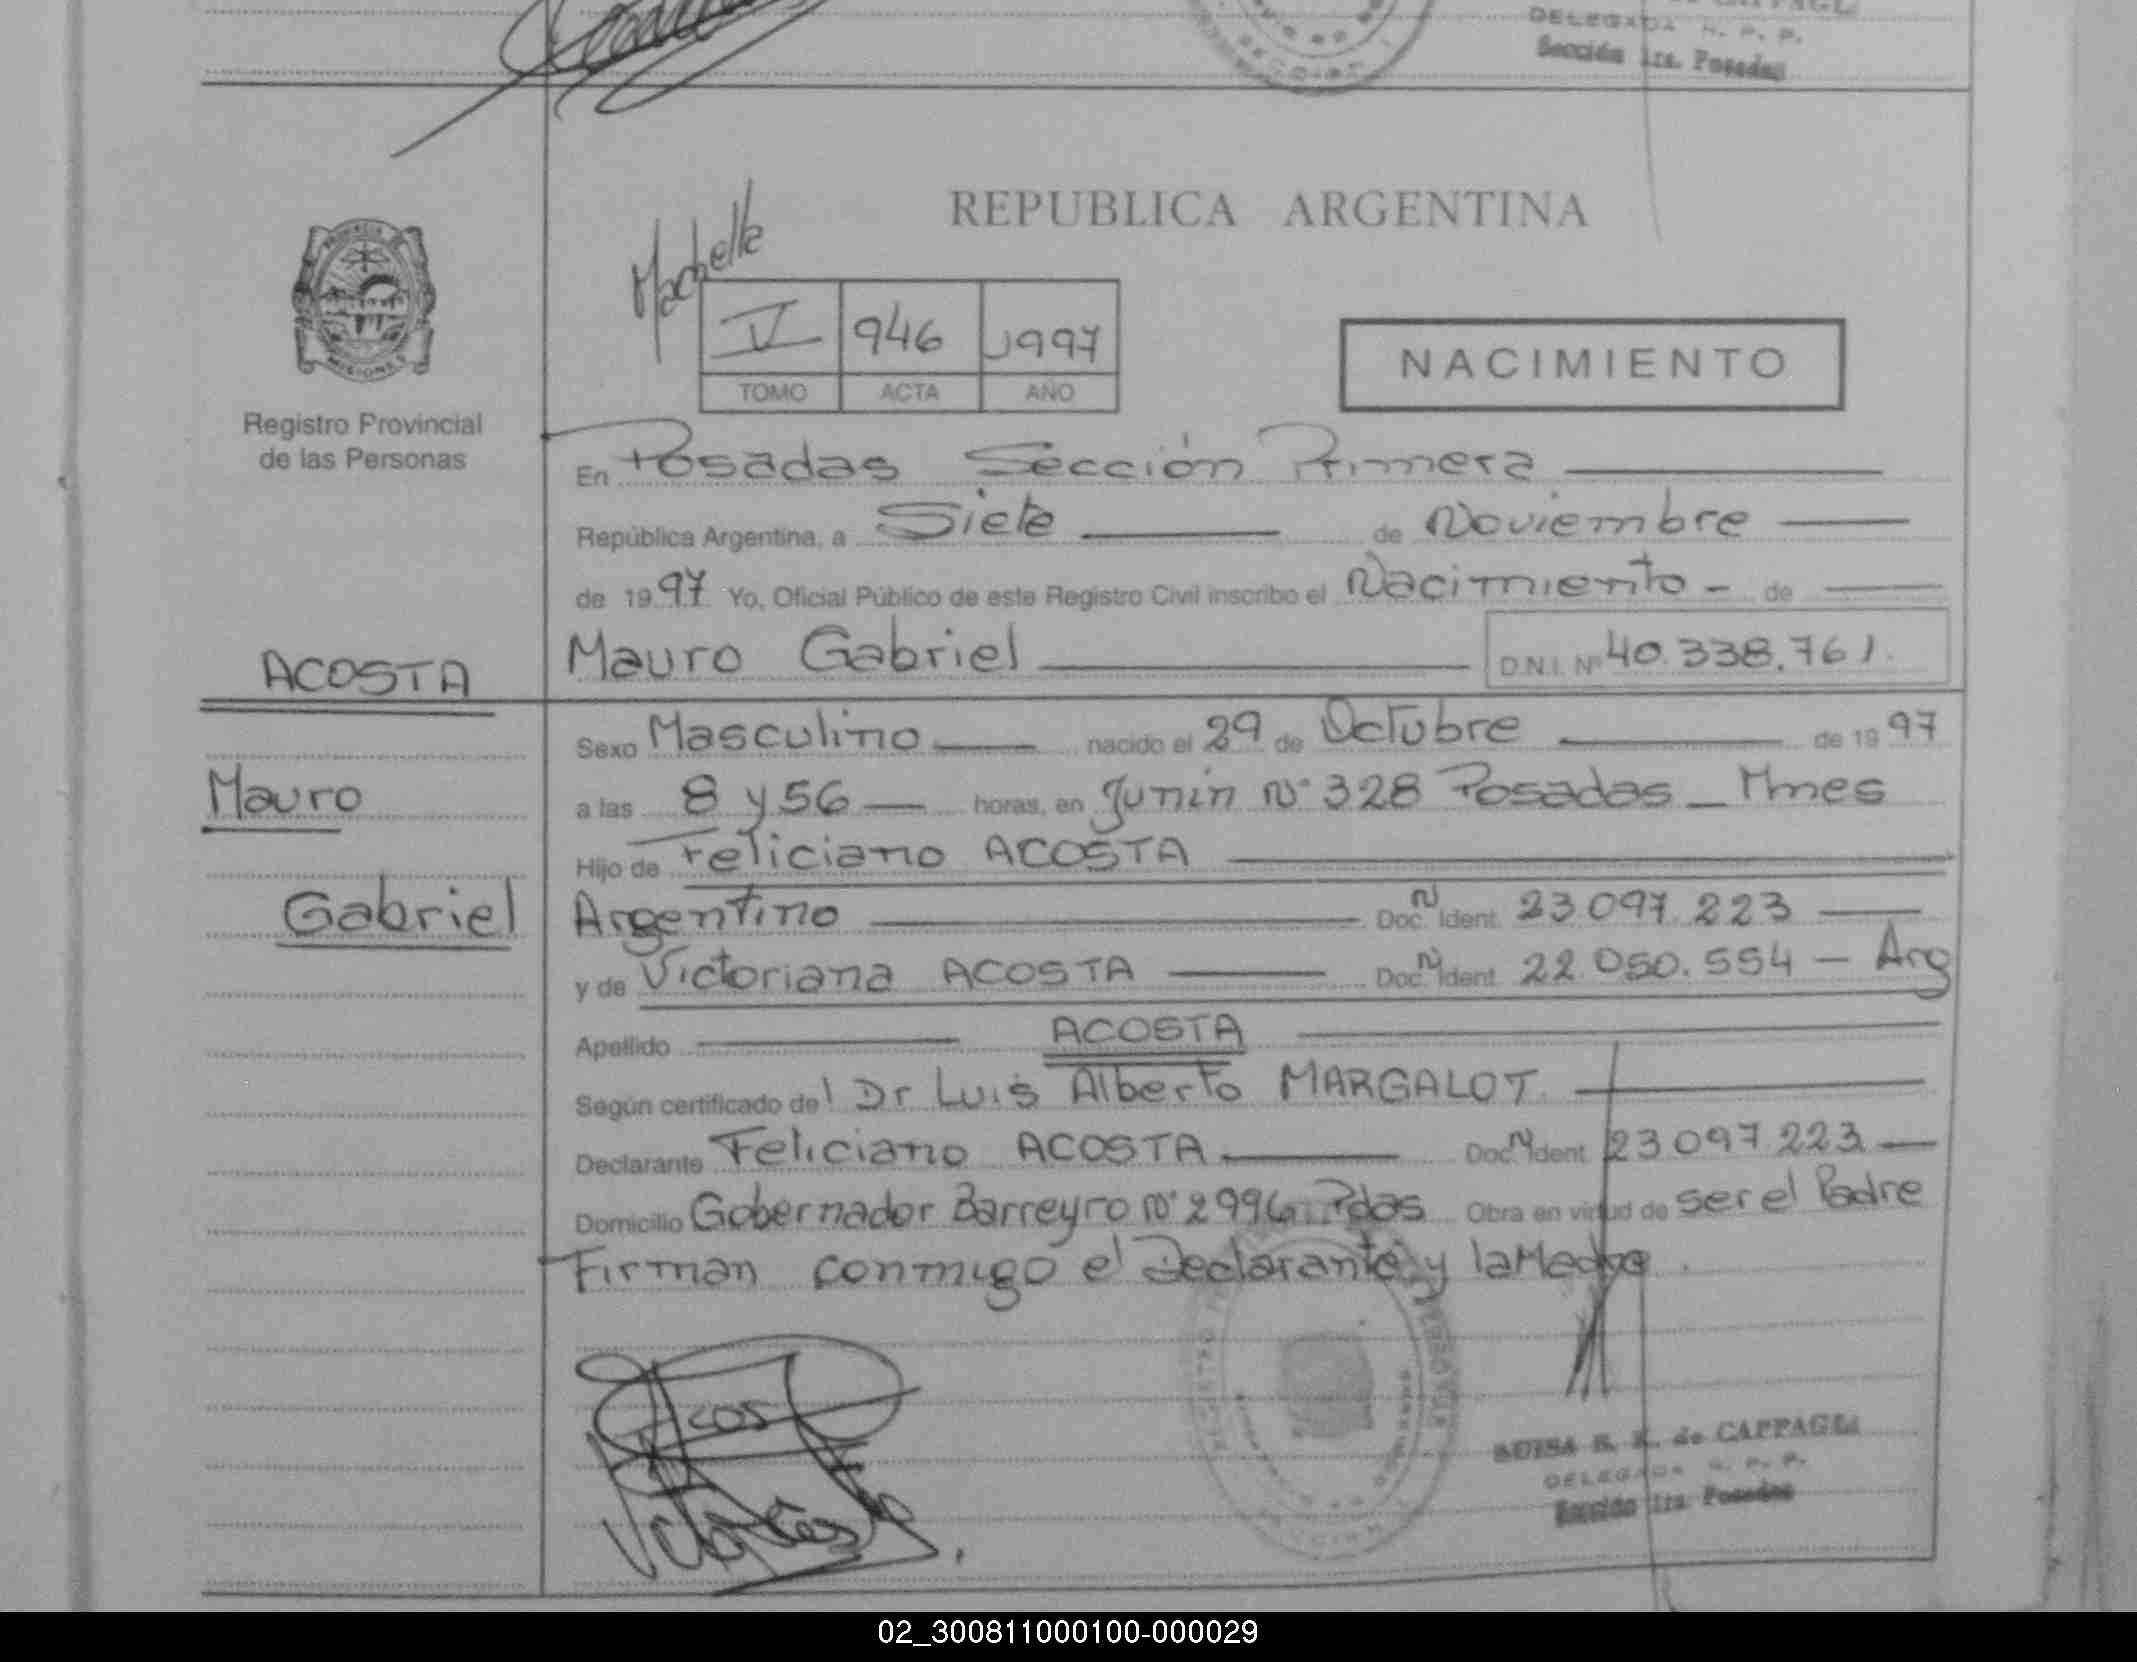 DELEGADA R. P. P.
Sección 1ra. Posadas
REPUBLICA ARGENTINA
V 946 1997
TOMO ACTA AÑO
NACIMIENTO
Registro Provincial
de las Personas
En Posadas Sección Primera
República Argentina, a Siete de Noviembre
de 1997 Yo, Oficial Público de este Registro Civil inscribo el Nacimiento - de
ACOSTA
Mauro Gabriel D.N.I. Nº 40.338.761.
Sexo Masculino nacido el 29 de Octubre de 1997
Mauro
a las 8 y 56 horas, en Junín Nº 328 Posadas - Mnes
Hijo de Feliciano ACOSTA
Gabriel
Argentino Doc. N Ident. 23 097 223
y de Victoriana ACOSTA Doc. N Ident. 22.050.554 - Arg
Apellido ACOSTA
Según certificado del Dr Luis Alberto MARGALOT
Declarante Feliciano ACOSTA Doc. N Ident. 23 097 223
Domicilio Gobernador Barreyro Nº 2996 Pdas Obra en virtud de ser el Padre
Firman conmigo el Declarante y la Madre.
de CAPPAGLI
DELEGADA R. P. P.
Sección 1ra. Posadas
02_300811000100-000029